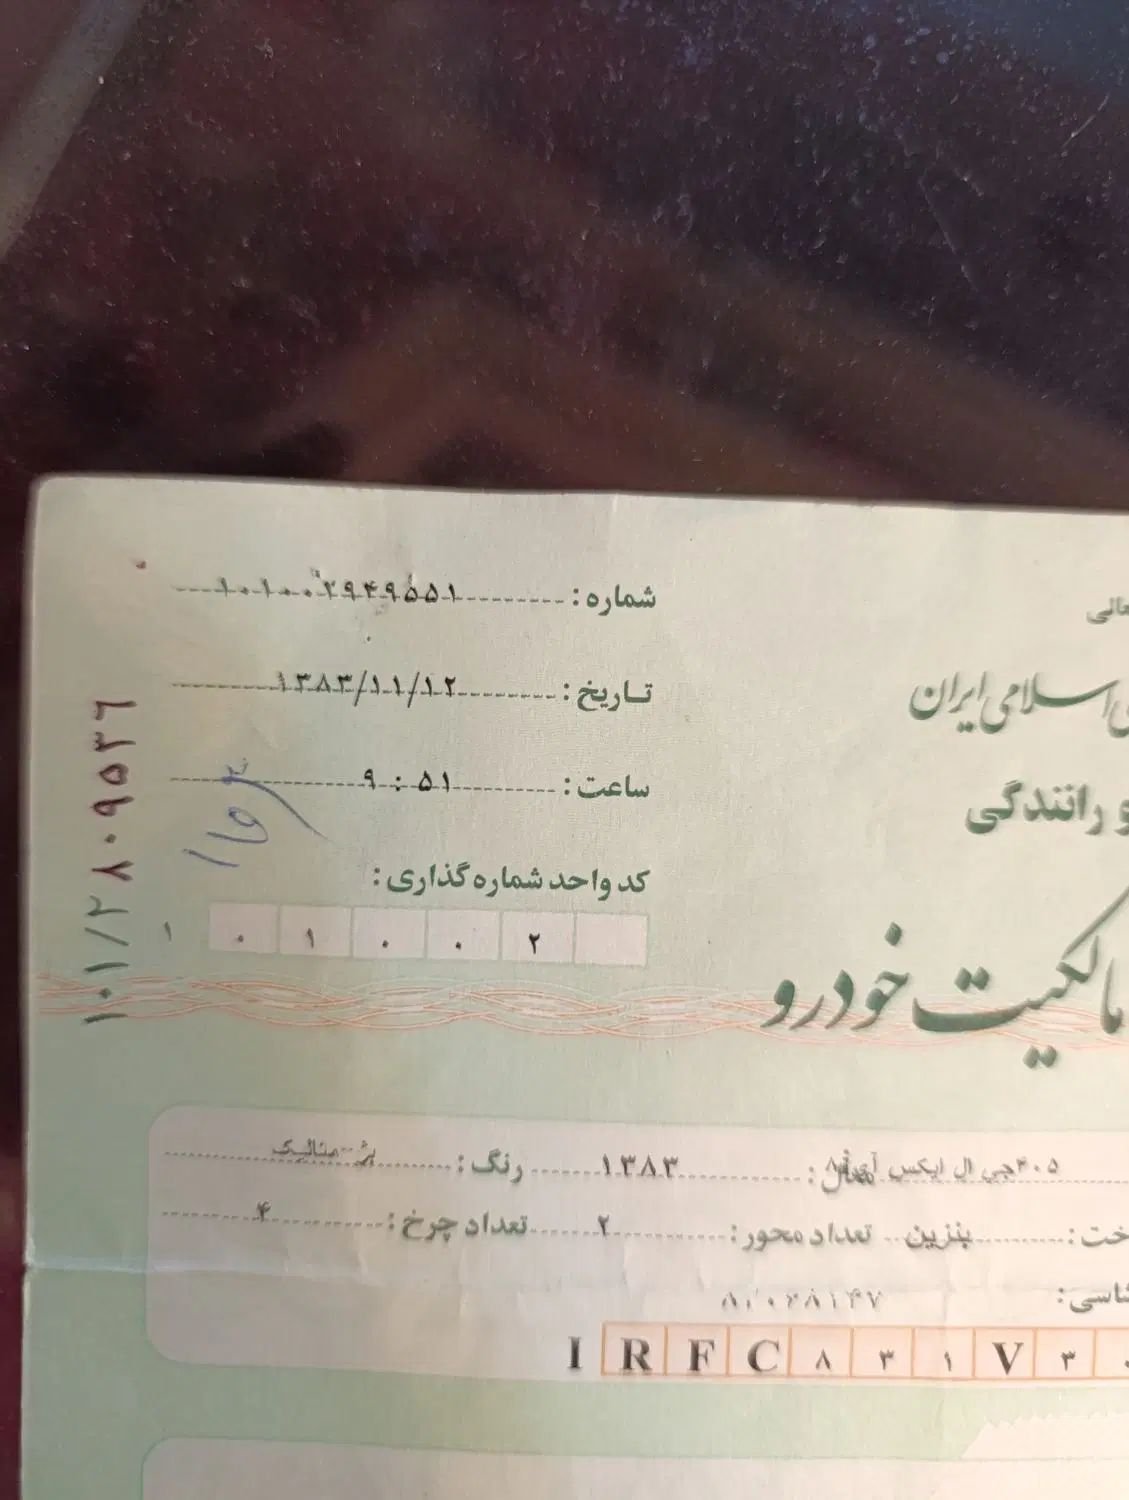 شماره: ۱۰۱۰۰۲۹۴۹۵۵۱
تاریخ: ۱۳۸۳/۱۱/۱۲
ساعت: ۹:۵۱
کد واحد شماره گذاری:
۱ ۰ ۱ ۰ ۰ ۲
۱۰۱/۲۸۰۹۵۳۶
اسلامی ایران
و رانندگی
مالکیت خودرو
۴۰۵جی ال ایکس آی مدل: ۱۳۸۳ رنگ: بژ-متالیک
بنزین تعداد محور: ۲ تعداد چرخ: ۴
I R F C ۸ ۳ ۱ V ۳ ۰